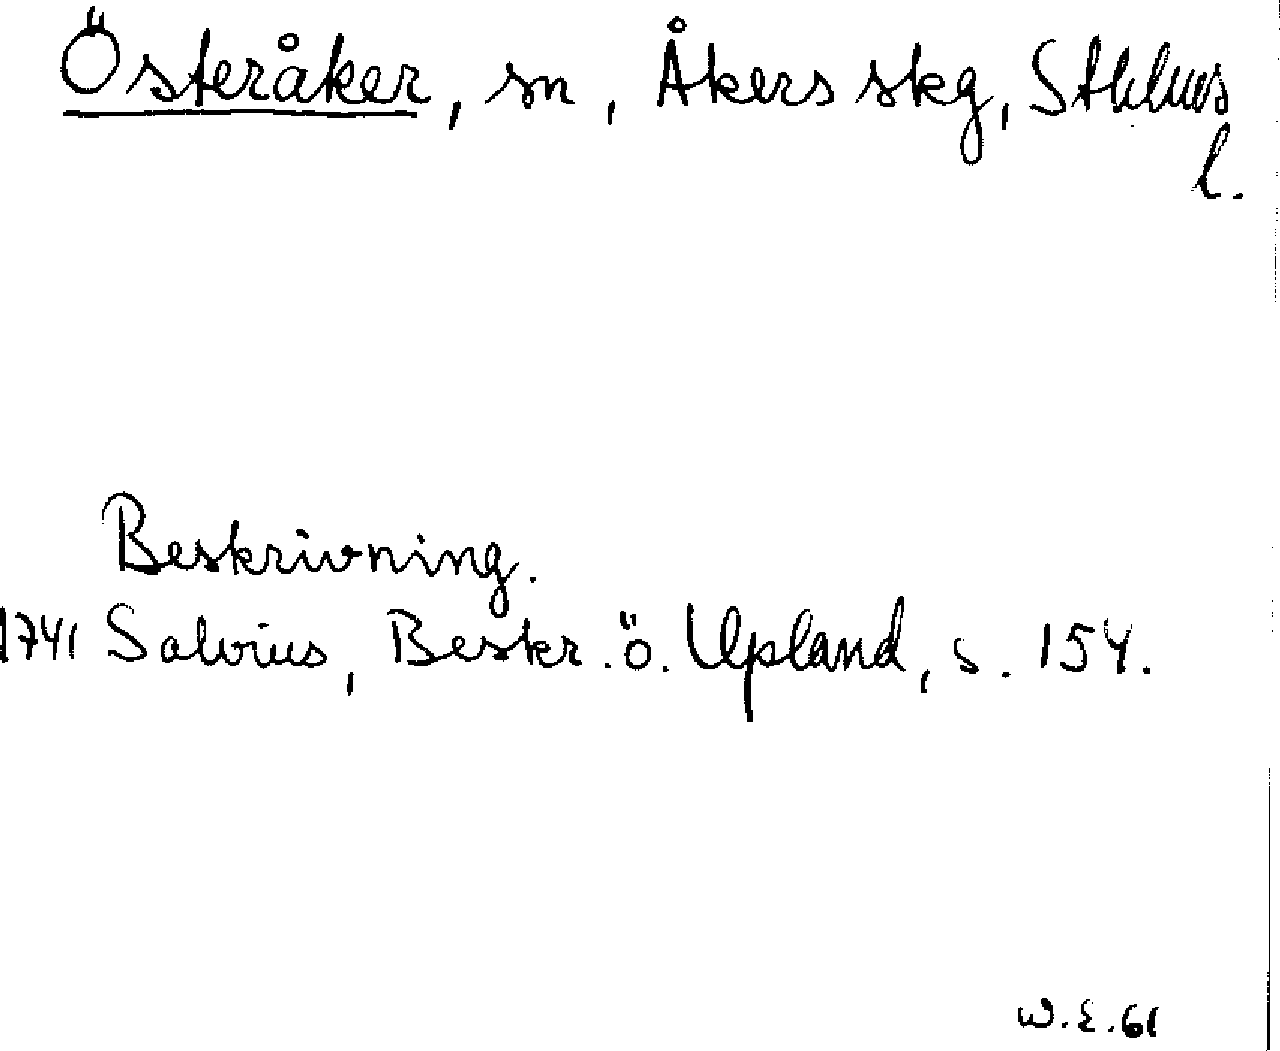 Österåker, sn, Åkers skg, Sthlms
l.
Beskrivning.
1741 Salvius, Beskr. ö. Upland, s. 154.
W.E.61